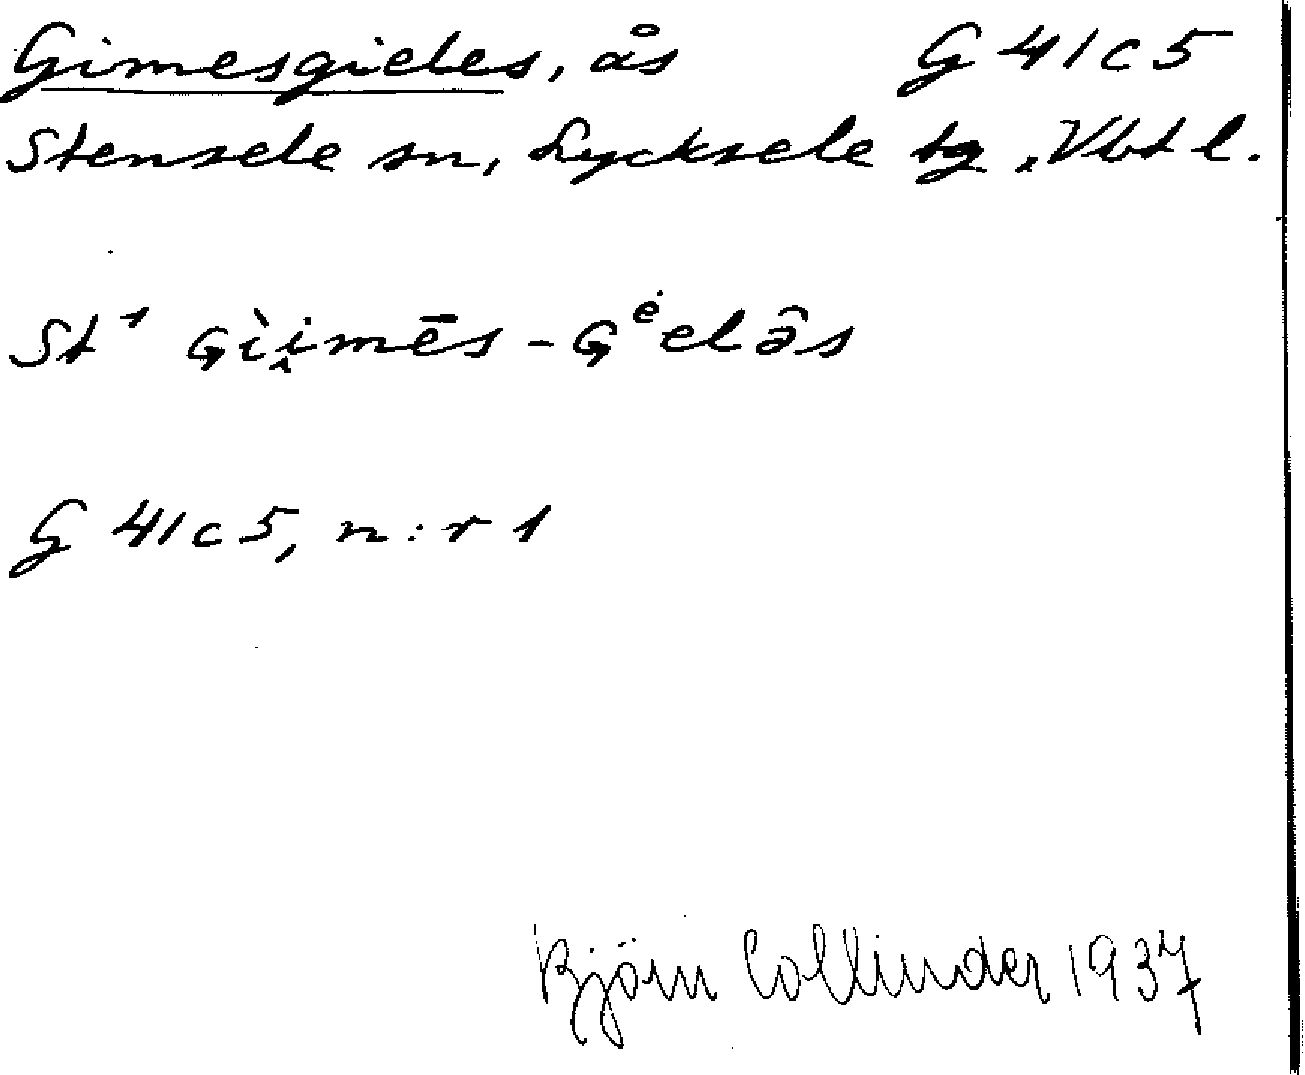 Gimesgieles, ås G 41c5
Stensele sn, Lycksele tg, Vbt l.
St¹ G̦ìi̭mēs-G̦ėelə̂s
G 41c5, n:r 1
Björn Collinder 1937